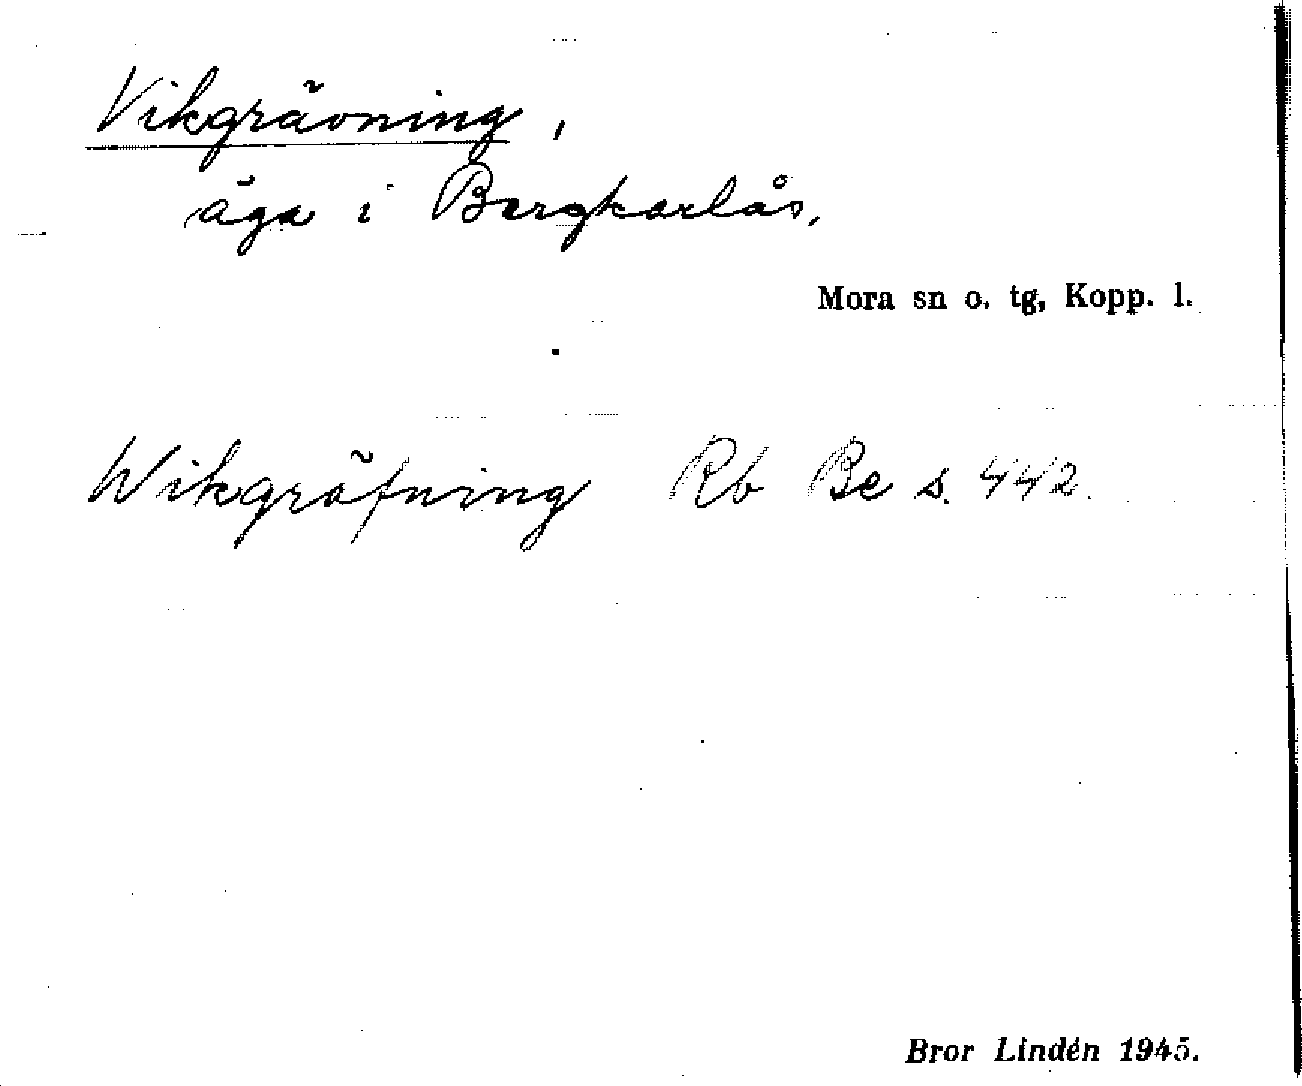 Vikgrävning,
äga i Bergkarlås.
Mora sn o. tg, Kopp. l.
Wikgräfning Rb Be s. 442.
Bror Lindén 1945.